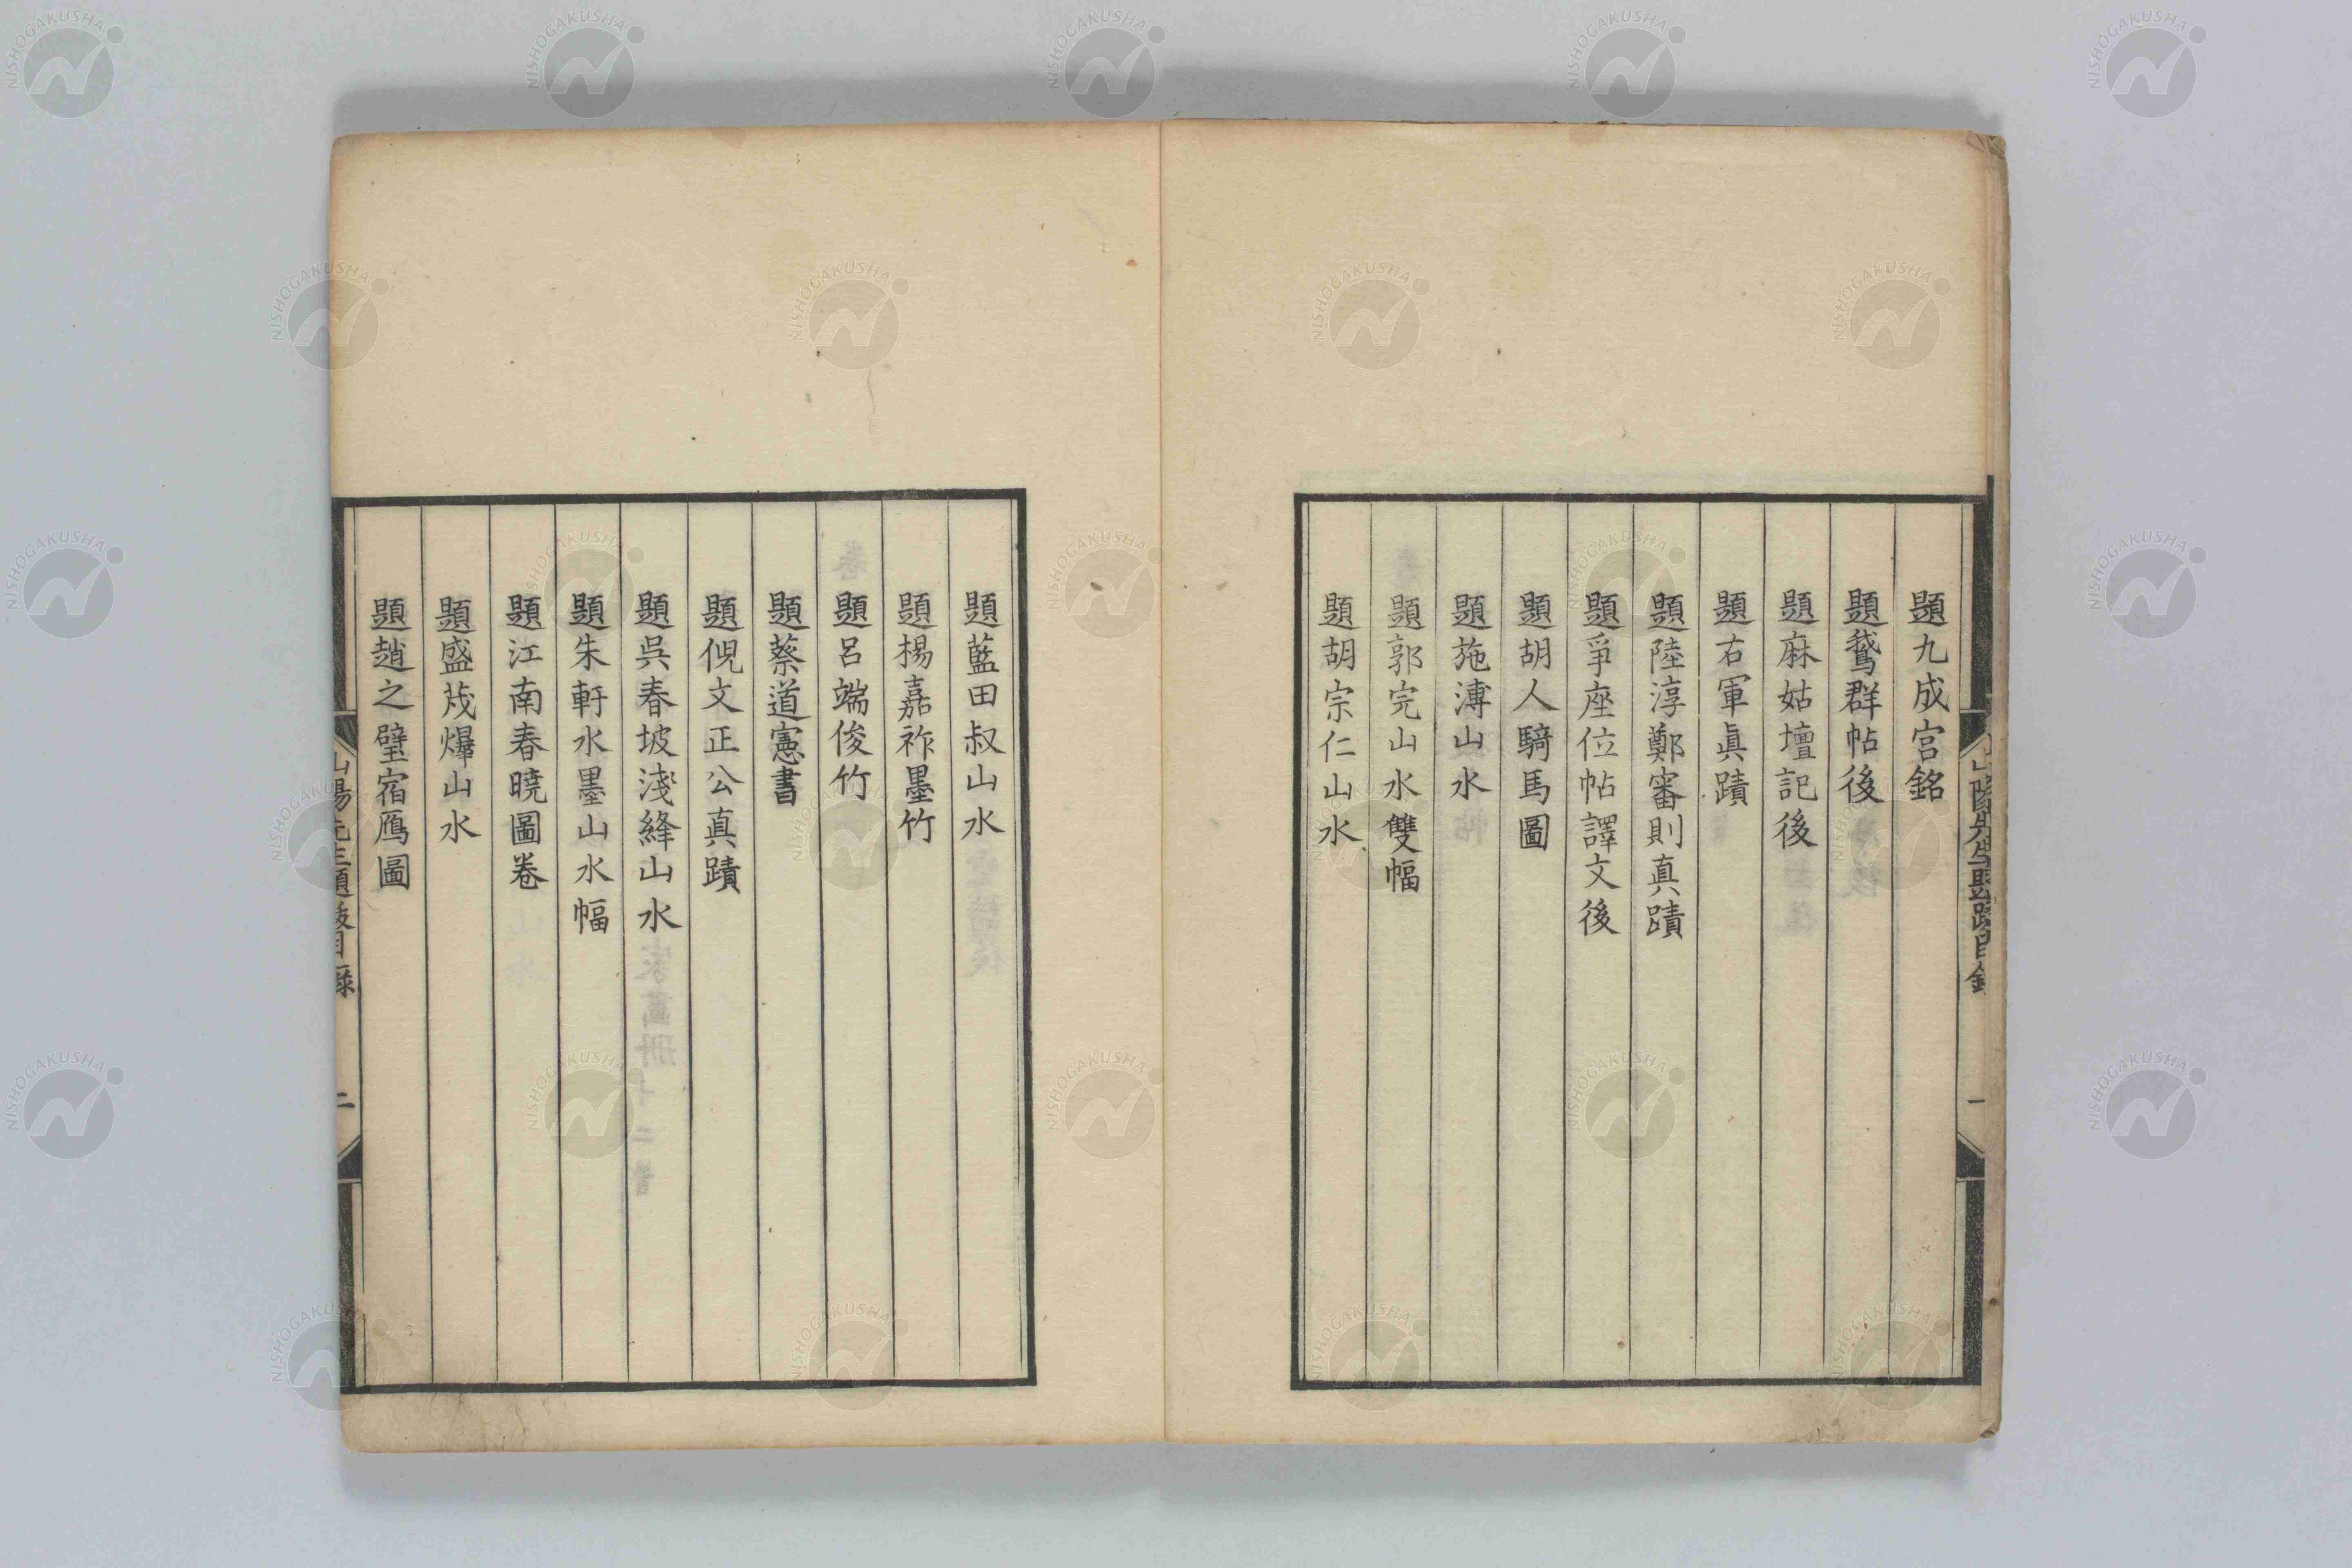 題九成宮銘
題鵞群帖後
題麻姑壇記後
題右軍眞蹟
題陸淳鄭審則真蹟
題爭座位帖譯文後
題胡人騎馬圖
題施溥山水
題郭完山水雙幅
題胡宗仁山水
一
題藍田叔山水
題楊嘉祚墨竹
題呂端俊竹
題蔡道憲書
題倪文正公真蹟
題吳春坡淺絳山水
題朱軒水墨山水幅
題江南春曉圖卷
題盛茂燁山水
題趙之璧宿鴈圖
山陽先生題跋目錄
二
NISHOGAKUSHA